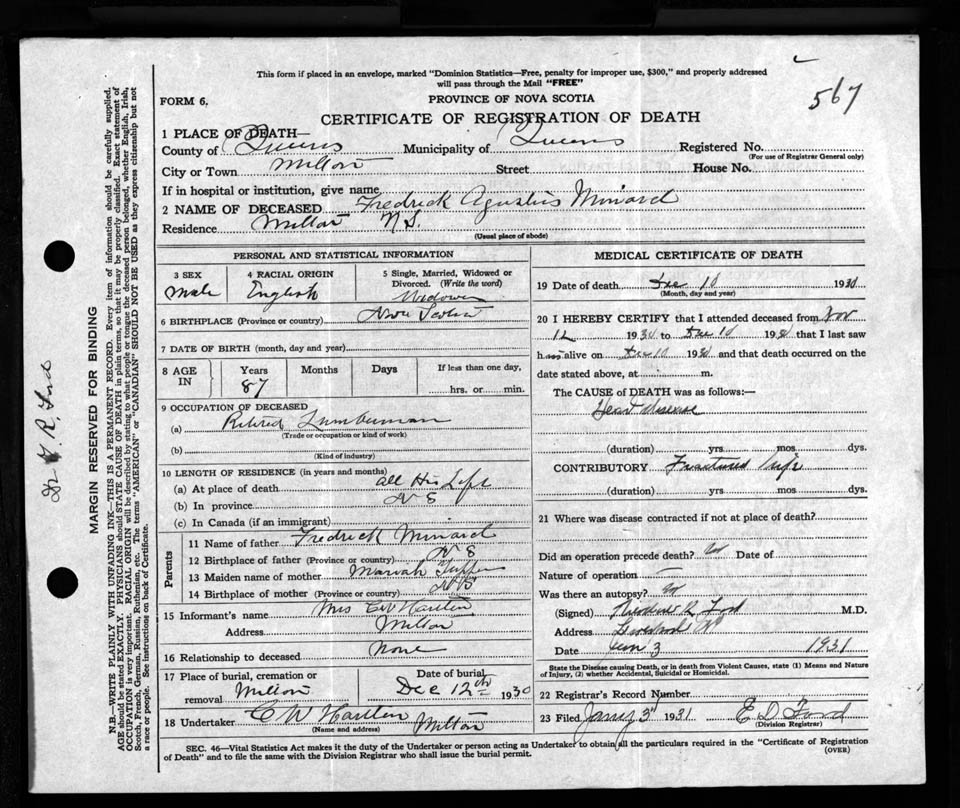 567
This form if placed in an envelope, marked "Dominion Statistics—Free, penalty for improper use, $300," and properly addressed
will pass through the Mail "FREE"
FORM 6.
PROVINCE OF NOVA SCOTIA
CERTIFICATE OF REGISTRATION OF DEATH
1 PLACE OF DEATH—
County of Queens Municipality of Queens Registered No.
(For use of Registrar General only)
City or Town Milton Street House No.
If in hospital or institution, give name
2 NAME OF DECEASED Fredrick Agustus Minard
Residence Milton N.S.
(Usual place of abode)
PERSONAL AND STATISTICAL INFORMATION
3 SEX 4 RACIAL ORIGIN 5 Single, Married, Widowed or
Divorced. (Write the word)
Male English Widower
6 BIRTHPLACE (Province or country) Nova Scotia
7 DATE OF BIRTH (month, day and year)
8 AGE IN Years Months Days If less than one day,
87 hrs. or min.
9 OCCUPATION OF DECEASED
(a) Retired Lumberman
(Trade or occupation or kind of work)
(b)
(Kind of industry)
10 LENGTH OF RESIDENCE (in years and months)
(a) At place of death all His Life
(b) In province N S
(c) In Canada (if an immigrant)
Parents
11 Name of father Fredrick Minard
12 Birthplace of father (Province or country) N S
13 Maiden name of mother Mariah Tupper
14 Birthplace of mother (Province or country) N S
15 Informant's name Mrs Harlen
Address Milton
16 Relationship to deceased None
17 Place of burial, cremation or removal Milton
Date of burial Dec 12th 1930
18 Undertaker C W Harlen Milton
(Name and address)
MEDICAL CERTIFICATE OF DEATH
19 Date of death Dec 10 1930
(Month, day and year)
20 I HEREBY CERTIFY that I attended deceased from Nov
12 1930 to Dec 10 1930 that I last saw
him alive on Dec 10 1930 and that death occurred on the
date stated above, at m.
The CAUSE OF DEATH was as follows:—
Heart disease
(duration) yrs mos dys.
CONTRIBUTORY Fractured hip
(duration) yrs mos dys.
21 Where was disease contracted if not at place of death?
Did an operation precede death? no Date of
Nature of operation —
Was there an autopsy? no
(Signed) Ford M.D.
Address Liverpool NS
Date Jan 3 1931
State the Disease causing Death, or in death from Violent Causes, state (1) Means and Nature
of Injury, (2) whether Accidental, Suicidal or Homicidal.
22 Registrar's Record Number
23 Filed Jany 3rd 1931 E D Ford
(Division Registrar)
SEC. 46—Vital Statistics Act makes it the duty of the Undertaker or person acting as Undertaker to obtain all the particulars required in the "Certificate of Registration
of Death" and to file the same with the Division Registrar who shall issue the burial permit.
(OVER)
MARGIN RESERVED FOR BINDING
N.B.—WRITE PLAINLY WITH UNFADING INK—THIS IS A PERMANENT RECORD. Every item of information should be carefully supplied.
AGE should be stated EXACTLY. PHYSICIANS should STATE CAUSE OF DEATH in plain terms, so that it may be properly classified. Exact statement of
OCCUPATION is very important. RACIAL ORIGIN will be described by stating to what people or tongue the deceased person belonged, whether English, Irish,
Scotch, French, German, Russian, Ruthenian, etc. The terms "AMERICAN" or "CANADIAN" SHOULD NOT BE USED as they express citizenship but not
a race or people. See instructions on back of Certificate.